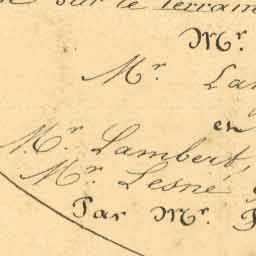 sur le Terrain
Mr.
Mr. La
en
Mr. Lambert,
Mr. Lesne
Par Mr.